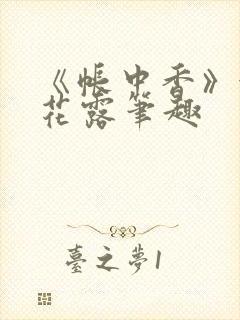 《帳中香》
花露筆趣
臺之夢1